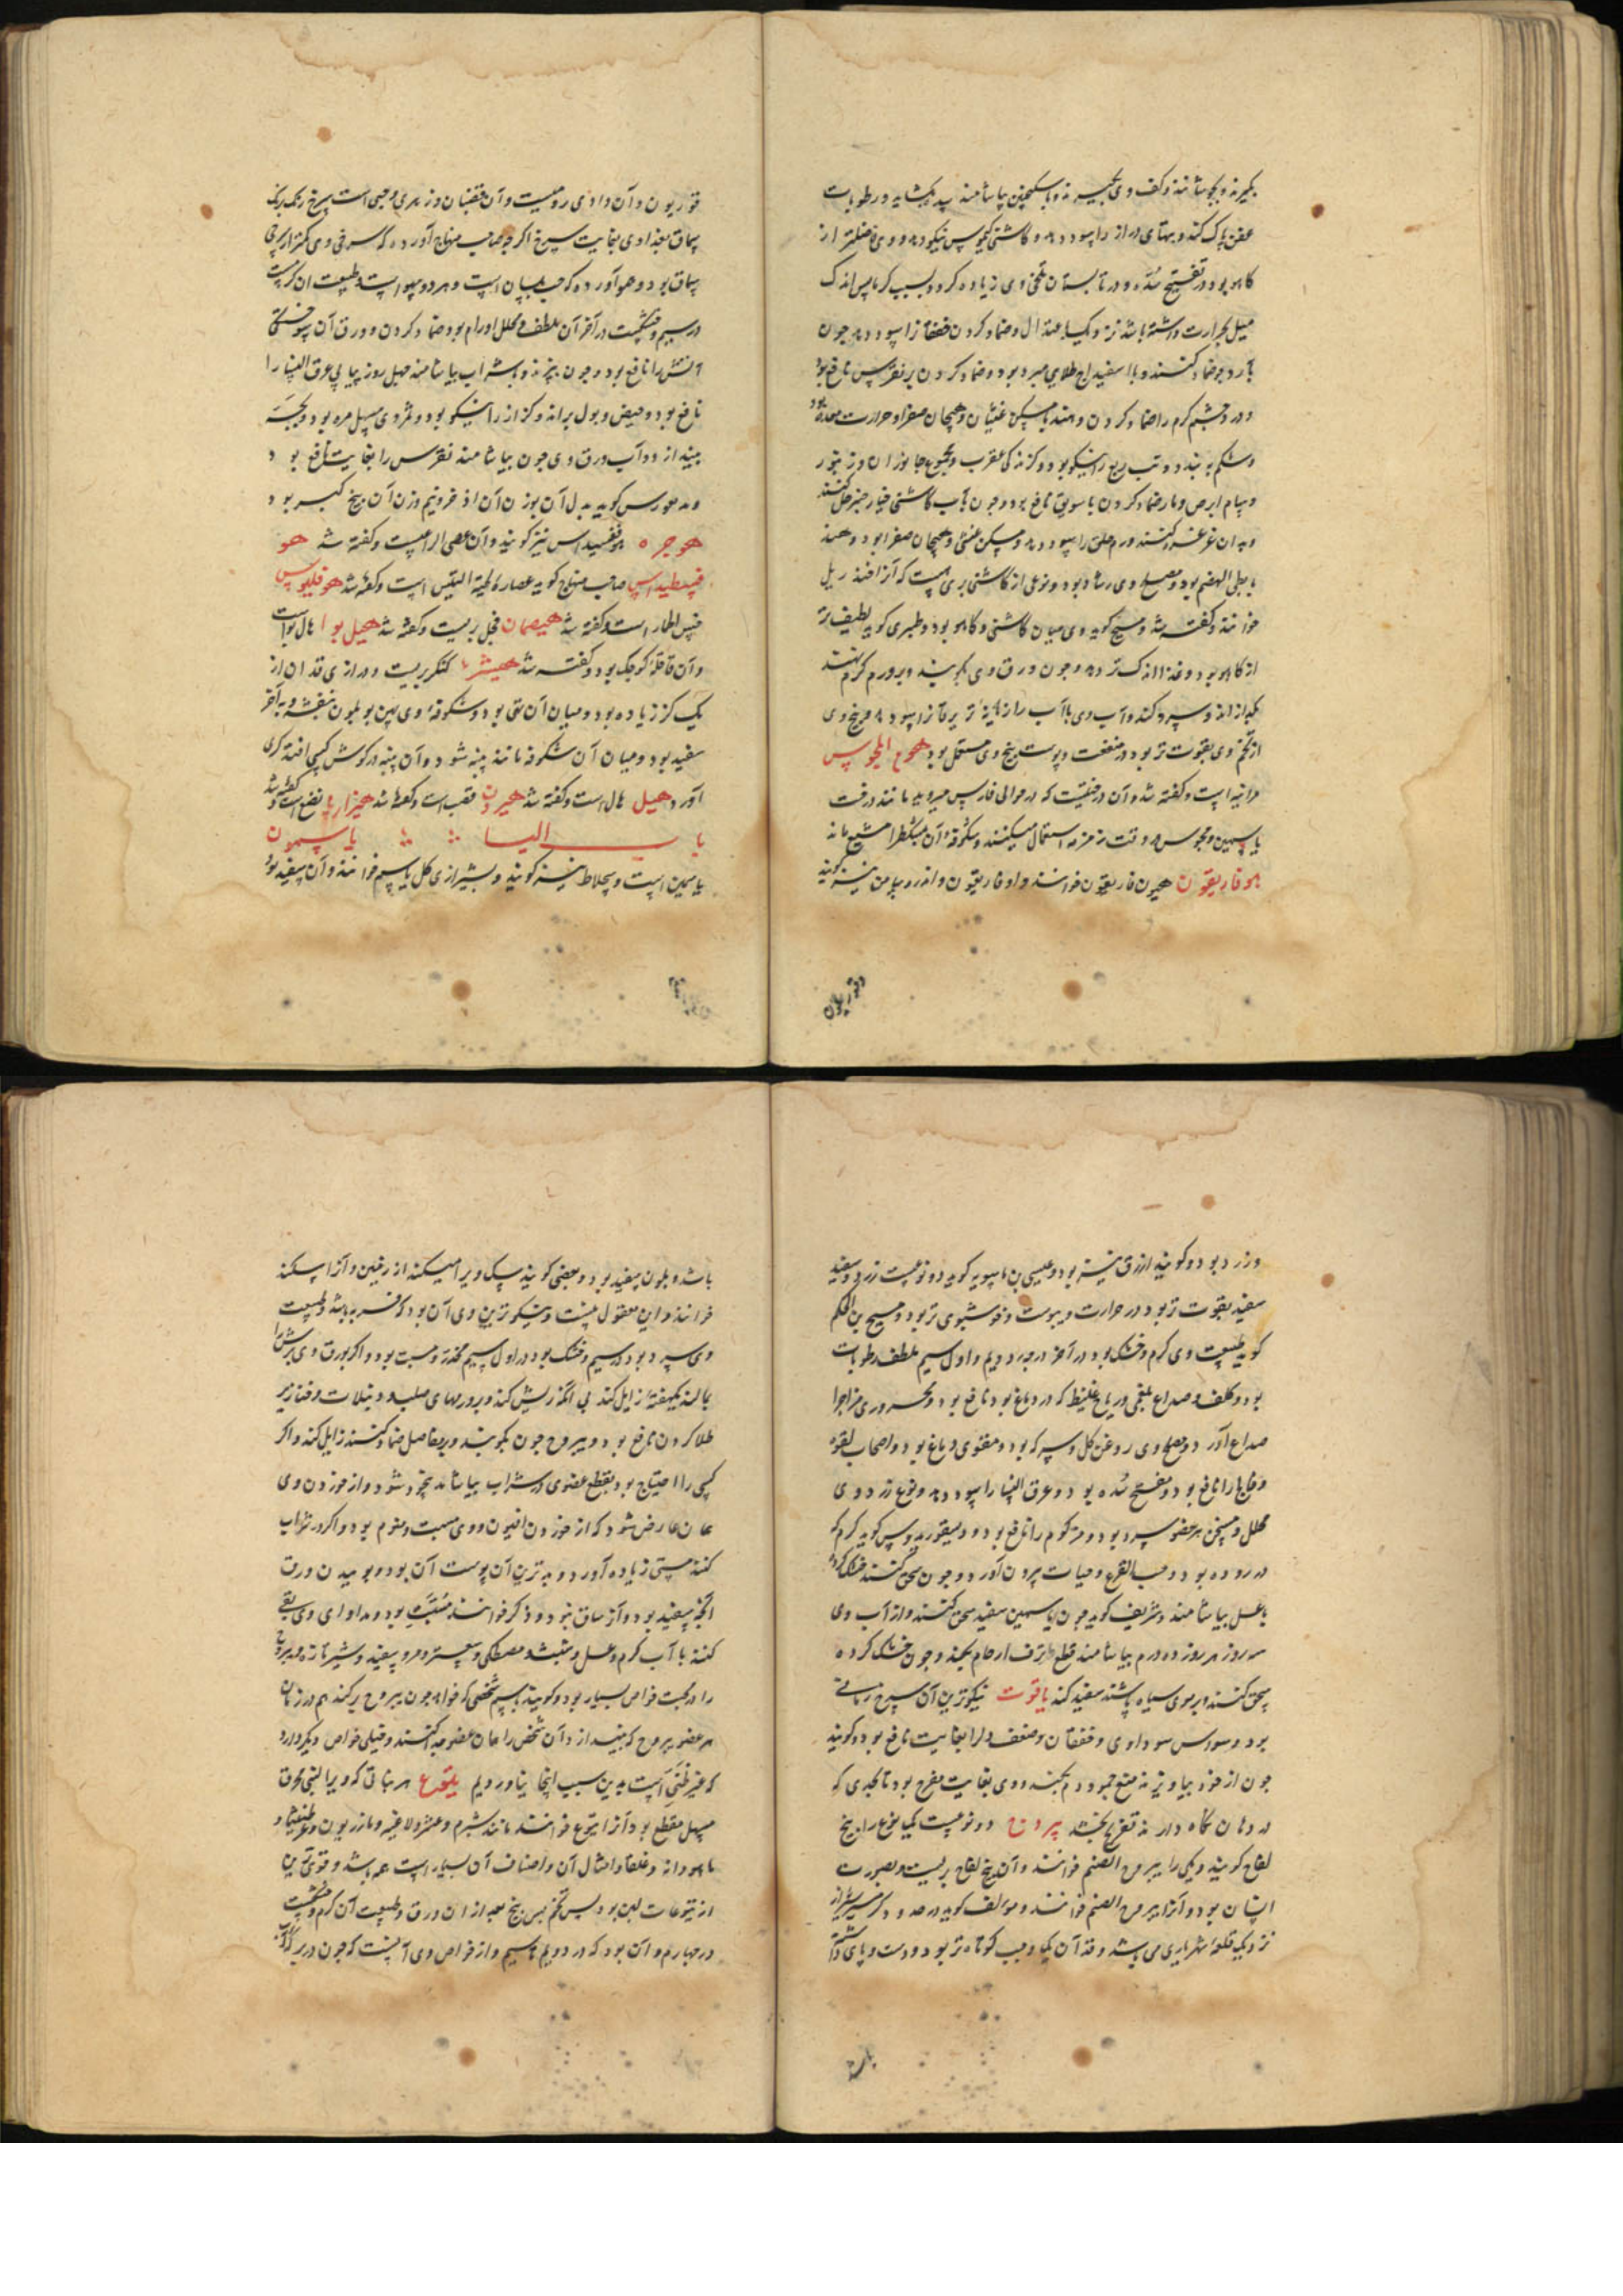 بگیرند و بجوشانند و کف وی بگیرند و با سکنجبین بیاشامند سده بگشاید و رطوبات
عفن پاک کند و تبهای دراز را سود دهد و کاشنی کیموس نیکو دهد و وی فاضلتر از
کاهو بود در تفتیح سده و در تابستان تلخی وی زیاده گردد بسبب گرما پس اندک
میل بحرارت داشته باشد نزدیک باعتدال و ضماد کردن خفقانرا سود دهد چون
بآرد جو ضماد کنند و با اسفیداج طلایی مبرد بود و ضماد کردن بر نقرس نافع بود
و درد چشم گرم را ضماد کردن و هندبا مسکن غثیان و هیجان صفرا و حرارت معده بود
و شکم به بندد و تب ربع را نیکو بود و گزندگی عقرب و مجموع جانوران و زنبور
و سام ابرص و مار ضماد کردن با سویق نافع بود و چون بآب کاشنی خیارچنبر حل کنند
و بدان غرغره کنند ورم حلق را سود دهد و مسکن غشی و هیجان صفرا بود و هند
با بطی الهضم بود و مصلح وی رشاد بود و نوعی از کاشنی بری هست که آنرا خندریل
خوانند و گفته شد و مسیح گوید وی میان کاشنی و کاهو بود و طبری گوید لطیف تر
از کاهو بود و غذا اندک تر دهد و چون ورق وی بکوبند و بر ورم گرم نهند
بگدازاند و سرد کند و آب وی با آب رازیانه تر یرقانرا سود دهد و بیخ وی
از تخم وی بقوت تر بود در منفعت و پوست بیخ وی مستعمل بود هوم المجوس
مرانیه است و گفته شد و آن درختیست که در حوالی فارس میروید مانند درخت
یاسمین و مجوس در وقت زمزمه استعمال میکنند و شکوفه آن
هوفاریقون هیون فاریقون خوانند و اوفاریقون و اندروسامن نیز گویند
قوریون و آن دادی رومیست و آن قضبان و زهری و حبی است سرخ رنگ برنگ
سماق بغدادی بغایت سرخ اگر چه صاحب منهاج آورده که سرخی وی کمتر از سرخی
سماق بود و هموآورده که حب بلسان است و هر دو سهو است و طبیعت آن گرمست
در سیم و خشکست در آخر آن ملطف و محلل اورام بود ضماد کردن و ورق آن سوختگی
آتش را نافع بود و چون بپزند و با شراب بیاشامند چهل روز پیاپی عرق النسا را
نافع بود و حیض و بول براند و کزاز را نیکو بود و ثمر وی مسهل مره بود و بچه
بیندازد و آب ورق وی چون بیاشامند نقرس را بغایت نافع بود
و دیسقوریدوس گوید بدل آن بوزن آن اذخر و نیم وزن آن بیخ کبر بود
هوجره هوفسیداس نیز گویند و آن عصی الراعیست و گفته شد هو
قسطیداس صاحب منهاج گوید عصاره لحیة التیس است و گفته شد هوفلیوس
خس الحمار است و گفته شد هیصمان فجل بریست و گفته شد هیل بوا هال بواست
و آن قاقله کوچک بود و گفته شد هیشر کنگر بریست و درازی قد آن از
یک گز زیاده بود و میان آن تهی بود و شکوفه وی پهن بود بلون بنفشه و به آخر
سفید بود و میان آن شکوفه مانند پنبه شود و آن پنبه در گوش کسی افتد کری
آورد هیل هال است و گفته شد هیرون قصب است و گفته شد هیزاریا نضع است و گفته شد
باب الیا یاسمون
یاسمین است و سجلاط نیز گویند و بشیرازی گل یاسم خوانند و آن سفید بود
و زرد بود و گویند ازرق نیز بود و عیسی بن ماسویه گوید دو نوعست زرد و سفید
سفید بقوت تر بود در حرارت و یبوست و خوشبوی تر بود و مسیح بن الحکم
گوید طبیعت وی گرم و خشک بود در آخر درجه دویم و اول سیم ملطف رطوبات
بود و کلف و صداع بلغمی و ریاح غلیظ که در دماغ بود نافع بود و محروری مزاجرا
صداع آورد و مصلح وی روغن گل و سرکه بود و مقوی دماغ بود و اصحاب لقوه
و فالج را نافع بود و مفتح سده بود و عرق النسا را سود دهد و نوع زرد وی
محلل و مسخن هر عضو سرد بود و مزکوم را نافع بود و دیسقوریدوس گوید کرم که
در روده بود و حب القرع و حیات بیرون آورد و چون سحق کنند خشک کرده
با عسل بیاشامند و شریف گوید چون یاسمین سفید سحق کنند و از آب وی
سه روز هر روز ده درم بیاشامند قطع نزف ارحام بکند و چون خشک کرده
سحق کنند و بر موی سیاه پاشند سفید کند یاقوت نیکوترین آن سرخ رمانی
بود وسواس سوداوی و خفقان و ضعف دل را بغایت نافع بود و گویند
چون از خود بیاویزند منع جمود دم بکند و وی بغایت مفرح بود تا بحدی که
در دهان نگاه دارند تفریح بخشد یبروح دو نوعست یک نوع را بیخ
لفاح گویند و یکی را یبروح الصنم خوانند و آن بیخ لفاح بریست و بصورت
انسان بود و آنرا یبروح الصنم خوانند و مؤلف گوید در حدود گرمسیر شیراز
نزدیک قلعه شهریاری می باشد و قد آن یک وجب کوتاه تر بود و دست و پای داشته
باشد و بلون سفید بود و بعضی گویند سگ ویرا میکند از زمین و آنرا سگ‌کند
خوانند و این معقول نیست و نیکوترین وی آن بود که فربه باشد و طبیعت
وی سرد بود در سیم و خشک بود در اول سیم مخدر و مسبت بود و اگر بورق وی برش را
بمالند یکهفته زایل کند بی آنکه ریش کند و بر ورمهای صلب و دبیلات و خنازیر
طلا کردن نافع بود و یبروح چون بکوبند و بر مفاصل ضماد کنند زایل کند و اگر
کسی را احتیاج بود بقطع عضوی در شراب بیاشامد بیخود شود و از خوردن وی
همان عارض شود که از خوردن افیون و وی مسبت و منوم بود و اگر در شراب
کنند مستی زیاده آورد و بهترین آن پوست آن بود و بوییدن ورق
آنکه سفید بود و آنرا ساق نبود و ذکر خوانند مسبت بود و مداوای وی بقی
کنند با آب گرم و عسل و شبت و مصطکی و سعتر و مرو سفید و شیر تازه و یبروح
را در محبت خواص بسیار بود و گویند باسم شخصی که خواهد چون یبروح برکند هم در زمان
هر عضو یبروح که بیندازد آن شخص را همان عضو جدا کنند و خیلی خواص دیگر دارد
که غیر ظنی است بدین سبب اینجا نیاوردیم یتوع هر نباتی که ویرا لبنی محرق
مسهل مقطع بود آنرا یتوع خوانند مانند شبرم و عشر و لاغیه و مازریون و عرطنیثا و
ماهودانه و حلقاد امثال آن و اصناف آن بسیار است همه باشد و قوی ترین
از یتوعات لبن بود پس تخم پس بیخ بعد از آن ورق و طبیعت آن گرم و خشکست
در چهارم و آن بود که در دویم تا سیم و از خواص وی آنست که چون در برکه آب